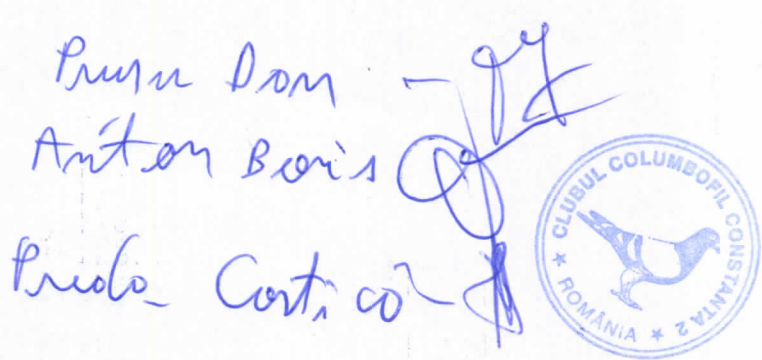 Dan -
Anton Boris
Preda Costică -
CLUBUL COLUMBOFIL CONSTANTA 2
★ ROMÂNIA ★